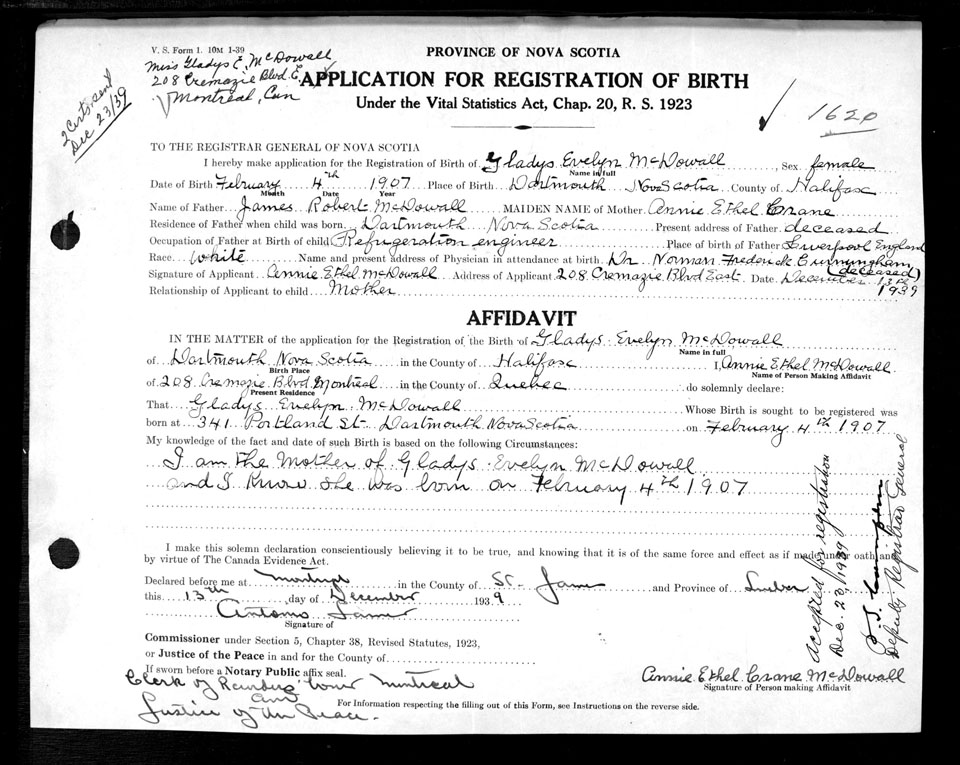 V. S. Form 1. 10M 1-39
Miss Gladys E. McDowall
208 Cremazie Blvd E.
Montreal, Can
2 Certs. sent
Dec 23/39
PROVINCE OF NOVA SCOTIA
APPLICATION FOR REGISTRATION OF BIRTH
Under the Vital Statistics Act, Chap. 20, R. S. 1923
1620
TO THE REGISTRAR GENERAL OF NOVA SCOTIA
I hereby make application for the Registration of Birth of Gladys Evelyn McDowall Sex female
Name in full
Date of Birth February 4th 1907 Place of Birth Dartmouth Nova Scotia County of Halifax
Month Date Year
Name of Father James Robert McDowall MAIDEN NAME of Mother Annie Ethel Crane
Residence of Father when child was born Dartmouth Nova Scotia Present address of Father deceased
Occupation of Father at Birth of child Refrigeration engineer Place of birth of Father Liverpool England
Race White Name and present address of Physician in attendance at birth Dr Norman Frederick Cunningham
(deceased)
Signature of Applicant Annie Ethel McDowall Address of Applicant 208 Cremazie Blvd East Date December 13th
1939
Relationship of Applicant to child Mother
AFFIDAVIT
IN THE MATTER of the application for the Registration of the Birth of Gladys Evelyn McDowall
Name in full
of Dartmouth Nova Scotia in the County of Halifax I, Annie Ethel McDowall
Birth Place Name of Person Making Affidavit
of 208 Cremazie Blvd Montreal in the County of Quebec do solemnly declare:
Present Residence
That Gladys Evelyn McDowall Whose Birth is sought to be registered was
born at 341 Portland St Dartmouth Nova Scotia on February 4th 1907
My knowledge of the fact and date of such Birth is based on the following Circumstances:
I am the Mother of Gladys Evelyn McDowall
and I know she was born on February 4th 1907
I make this solemn declaration conscientiously believing it to be true, and knowing that it is of the same force and effect as if made under oath and
by virtue of The Canada Evidence Act.
Declared before me at in the County of St. and Province of
this 13th day of December 1939
Signature of
Commissioner under Section 5, Chapter 38, Revised Statutes, 1923,
or Justice of the Peace in and for the County of
If sworn before a Notary Public affix seal.
Clerk of Montreal
and
Justice of the Peace.
Annie Ethel Crane McDowall
Signature of Person making Affidavit
For Information respecting the filling out of this Form, see Instructions on the reverse side.
Accepted for registration
Dec. 23, 1939
Deputy Registrar General